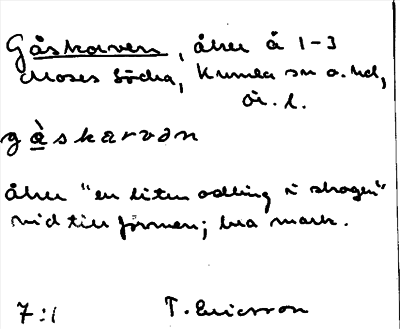 Gåskaven, åker å 1-3
Moses Södra, Kumla sn o. hd,
Ör. l.
gàskarvan
åker "en liten odling i skogen"
vid till formen; bra mark.
7:1 T. Ericsson